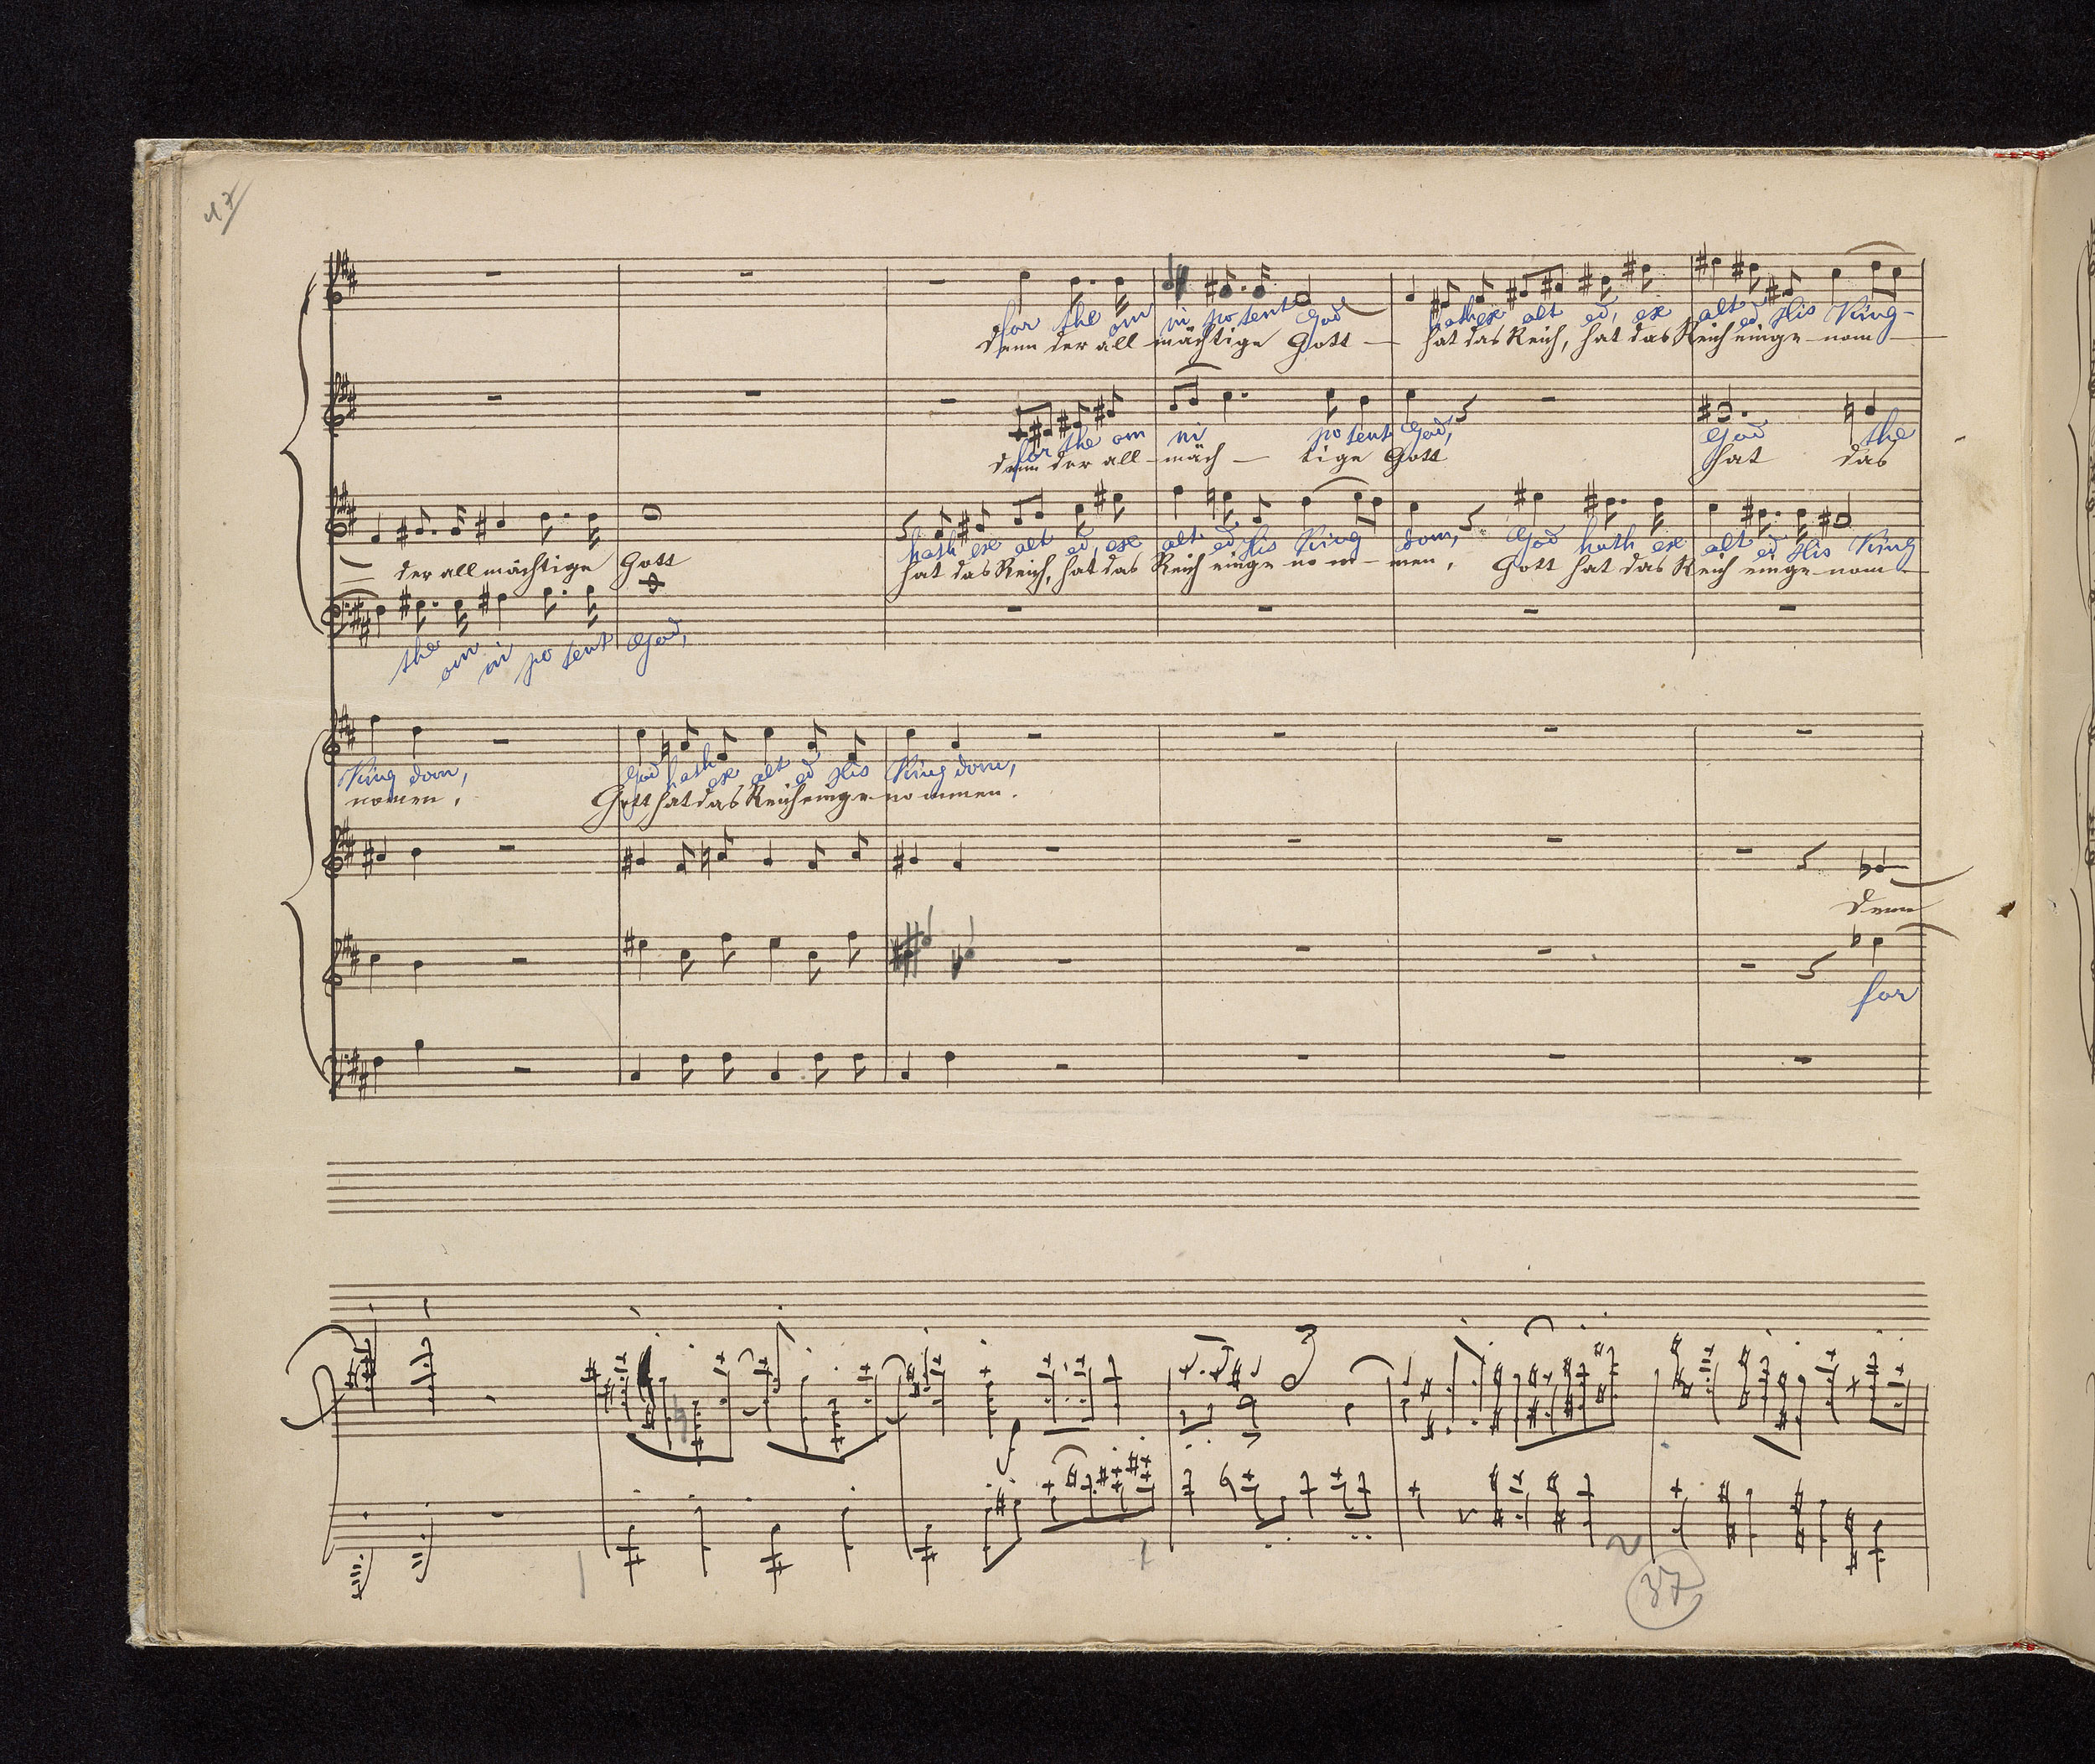 17
for the om ni po tent God hath ex alt ed, ex alt ed His King-
denn der all mächtige Gott hat das Reich, hat das Reich einge nom
for the om ni po tent God, God the
denn der all mäch tige Gott hat das
hath ex alt ed, ex alt ed His King dom, God hath ex alt ed His King
der all mächtige Gott hat das Reich, hat das Reich einge nom men, Gott hat das Reich einge nom
the om ni po tent God,
King dom, God hath ex alt ed His King dom,
nomen, Gott hat das Reich einge nommen.
denn
for
f
37